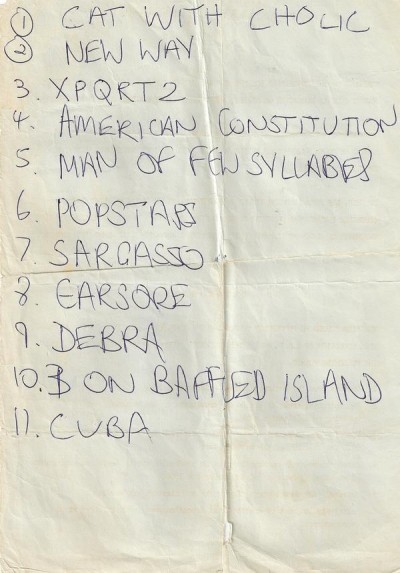 1 CAT WITH CHOLIC
2 NEW WAY
3. XPQRT2
4. AMERICAN CONSTITUTION
5. MAN OF FEW SYLLABLES
6. POPSTARS
7. SARGASSO
8. EARSORE
9. DEBRA
10. B ON BAFFLED ISLAND
11. CUBA